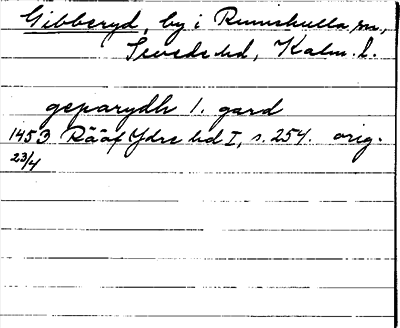 Gibberyd, by i Rumskulla sn,
Sevede hd, Kalm. l.
geparydh 1. gard
1453 Rääf Ydre hd I, s. 254. orig.
23/4